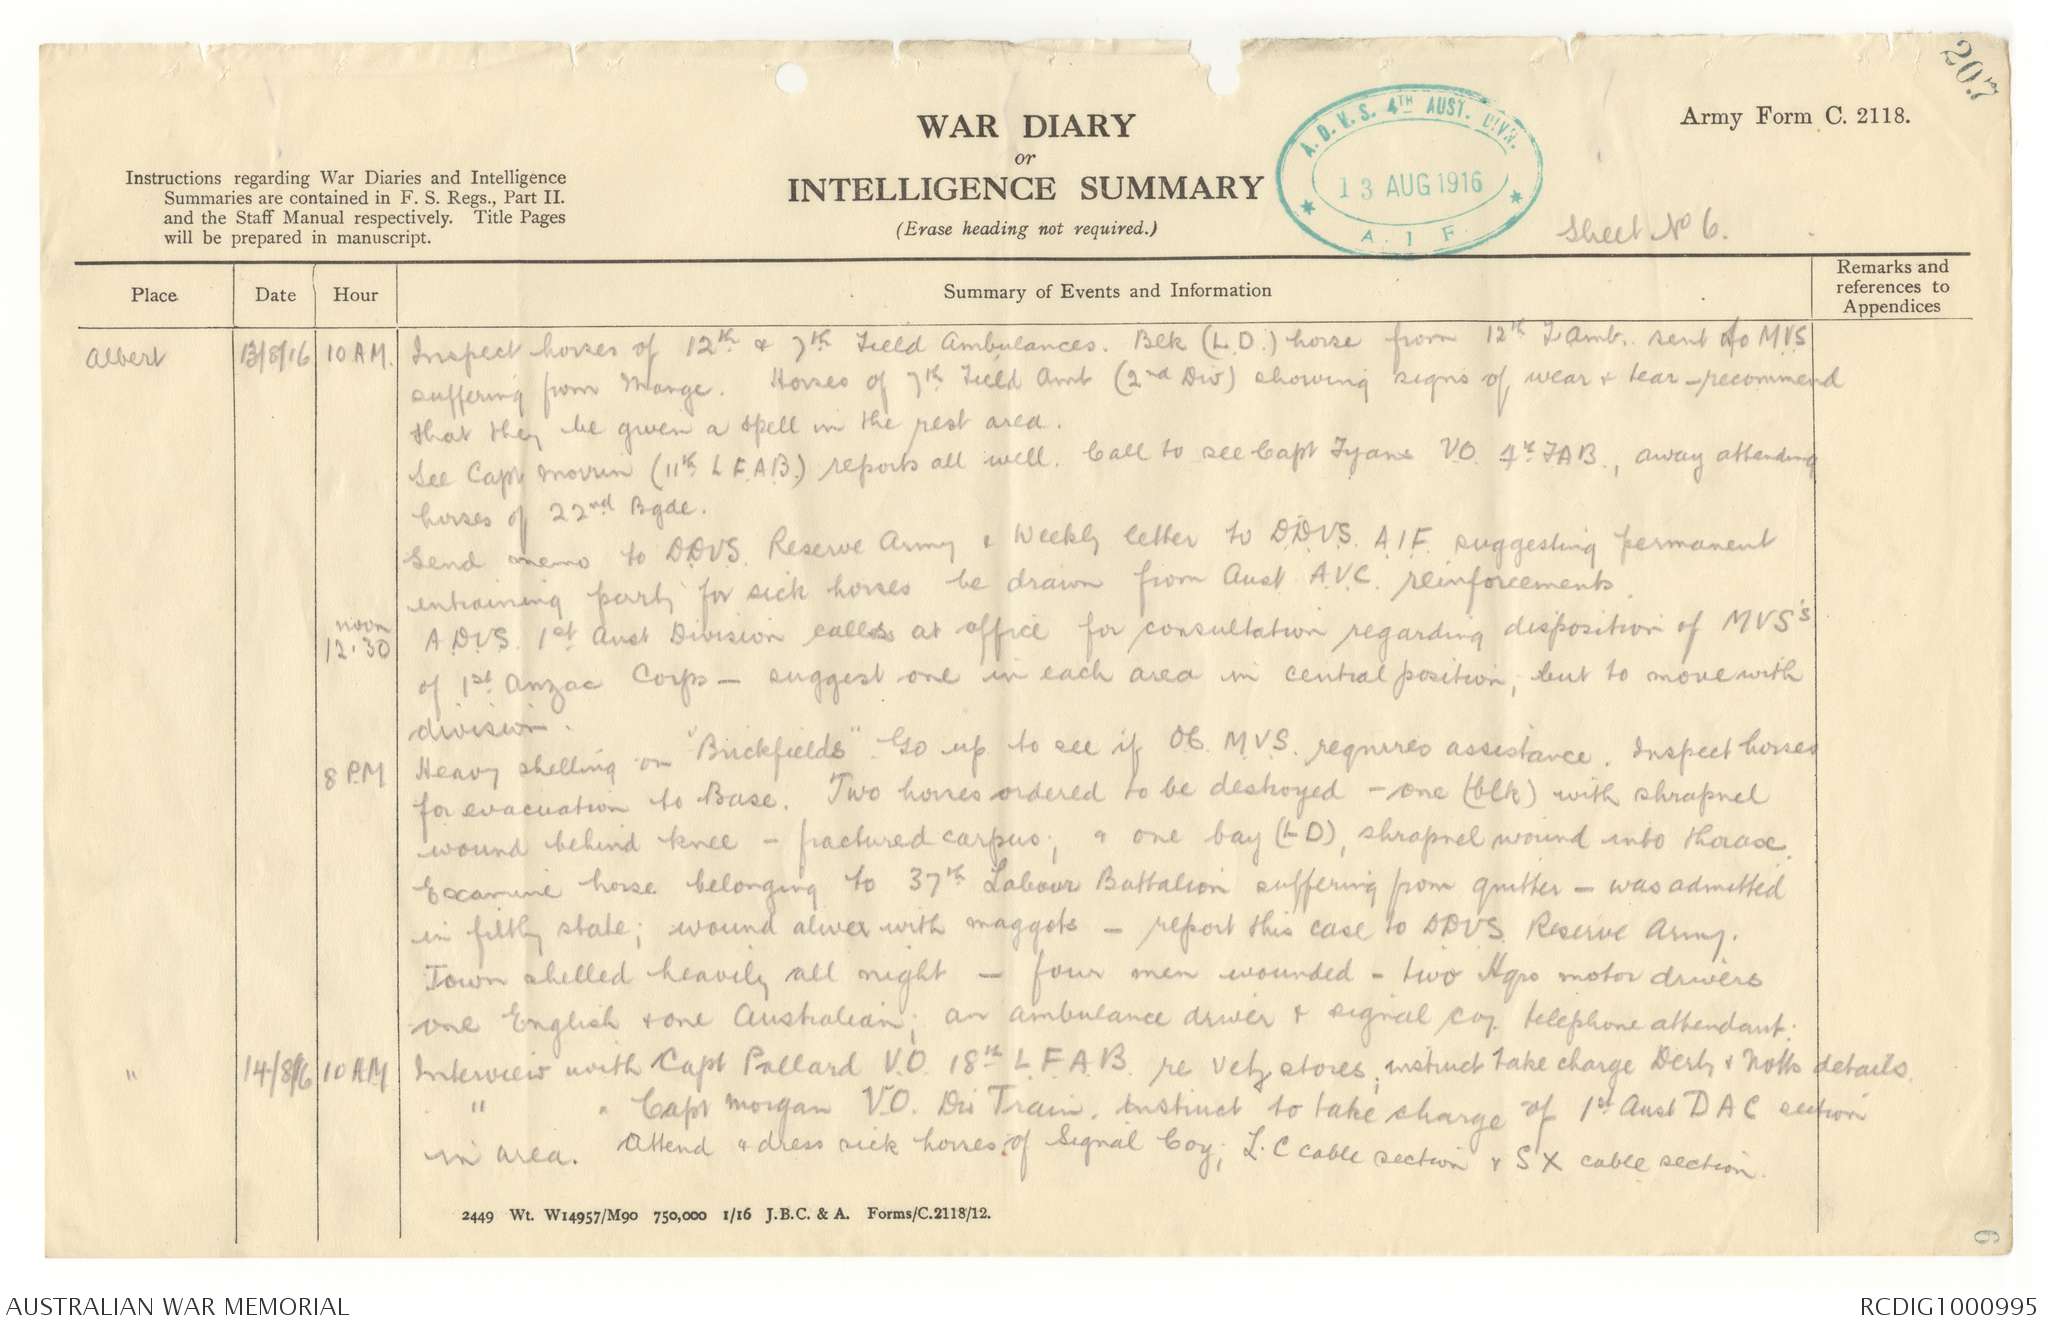 207
WAR DIARY
or
INTELLIGENCE SUMMARY
(Erase heading not required.)
Army Form C. 2118.
Instructions regarding War Diaries and Intelligence
Summaries are contained in F. S. Regs., Part II.
and the Staff Manual respectively. Title Pages
will be prepared in manuscript.
A.D.V.S. 4TH AUST. DIVN.
13 AUG 1916
A. I. F.
Sheet No 6.
Place Date Hour Summary of Events and Information Remarks and references to Appendices
Albert 13/8/16 10 AM. Inspect horses of 12th & 7th Field Ambulances. Blk (L.D.) horse from 12th F Amb. sent to MVS
suffering from Mange. Horses of 7th Field Amb (2nd Div) showing signs of wear & tear – recommend
that they be given a spell in the rest area.
See Capt (11th L F A B.) reports all well. Call to see Capt VO. 4th FAB., away attending
horses of 22nd Bgde.
Send memo to DDVS. Reserve Army & Weekly letter to DDVS. AIF. suggesting permanent
entraining party for sick horses be drawn from Aust A.V.C. reinforcements.
noon 12.30 A.D.V.S. 1st Aust Division calls at office for consultation regarding disposition of MVS's
of 1st Anzac Corps – suggest one in each area in central position, but to move with
division.
8 P.M Heavy shelling on "Brickfields". Go up to see if OC. M.V.S. requires assistance. Inspect horses
for evacuation to Base. Two horses ordered to be destroyed – one (blk) with shrapnel
wound behind knee – fractured carpus; & one bay (LD), shrapnel wound into thorax.
Examine horse belonging to 37th Labour Battalion suffering from quitter – was admitted
in filthy state; wound alive with maggots – report this case to DDVS. Reserve Army.
Town shelled heavily all night – four men wounded – two Hqrs motor drivers
one English & one Australian; an ambulance driver & signal coy. telephone attendant.
" 14/8/16 10 AM Interview with Capt Pollard V.O. 18th L.F.A.B. re Vety stores, instruct take charge Derby & Notts details.
" " Capt Morgan V.O. Div Train. Instruct to take charge of 1st Aust DAC section
in area. Attend & dress sick horses of Signal Coy; L.C cable section & S X cable section.
2449 Wt. W14957/M90 750,000 1/16 J.B.C. & A. Forms/C.2118/12.
6
AUSTRALIAN WAR MEMORIAL
RCDIG1000995